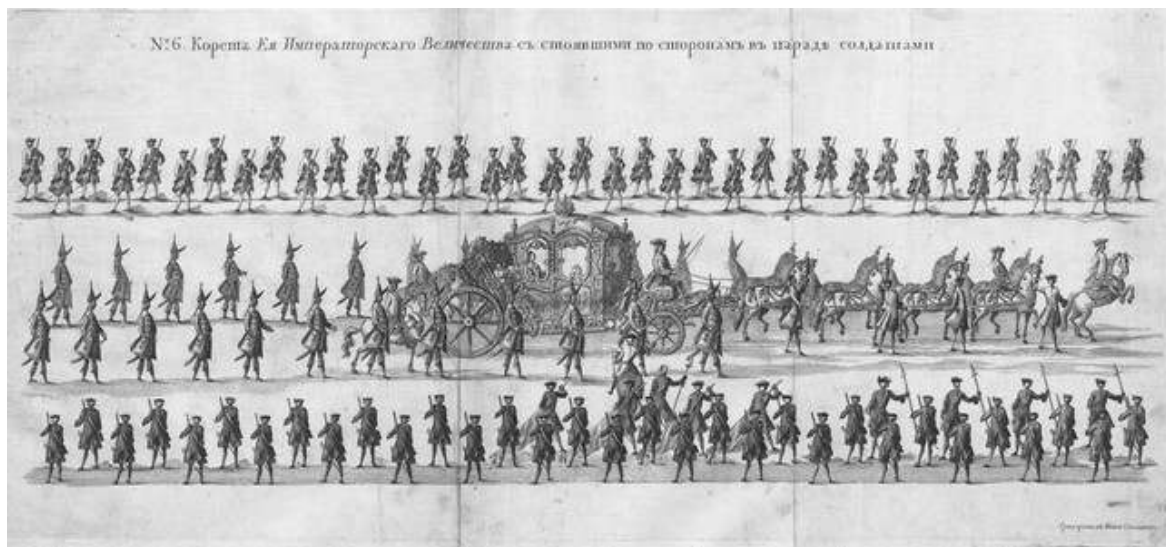 № 6. Корета Ея Императорскаго Величества съ стоявшими по сторонамъ въ парадѣ солдатами